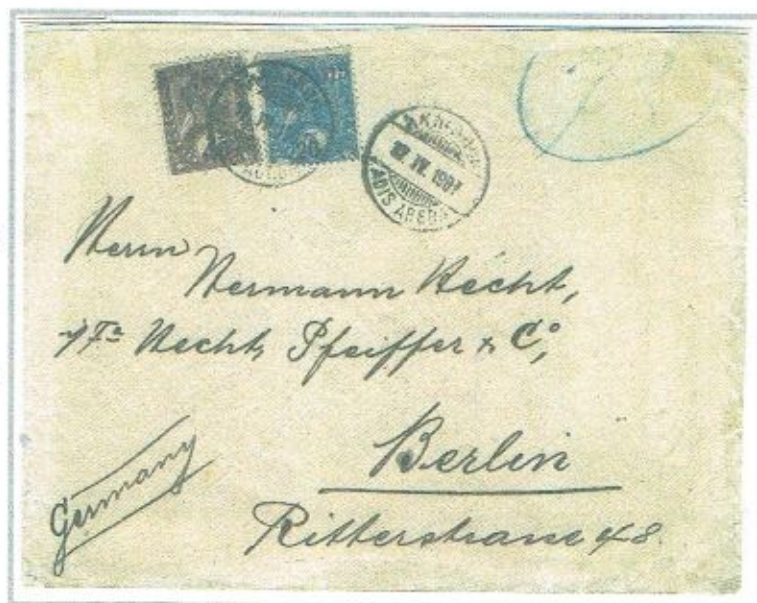 ADIS ABEBA
Herrn
Hermann Hecht,
Hecht, Pfeiffer & Co,
Berlin
Ritterstrasse 48.
Germany